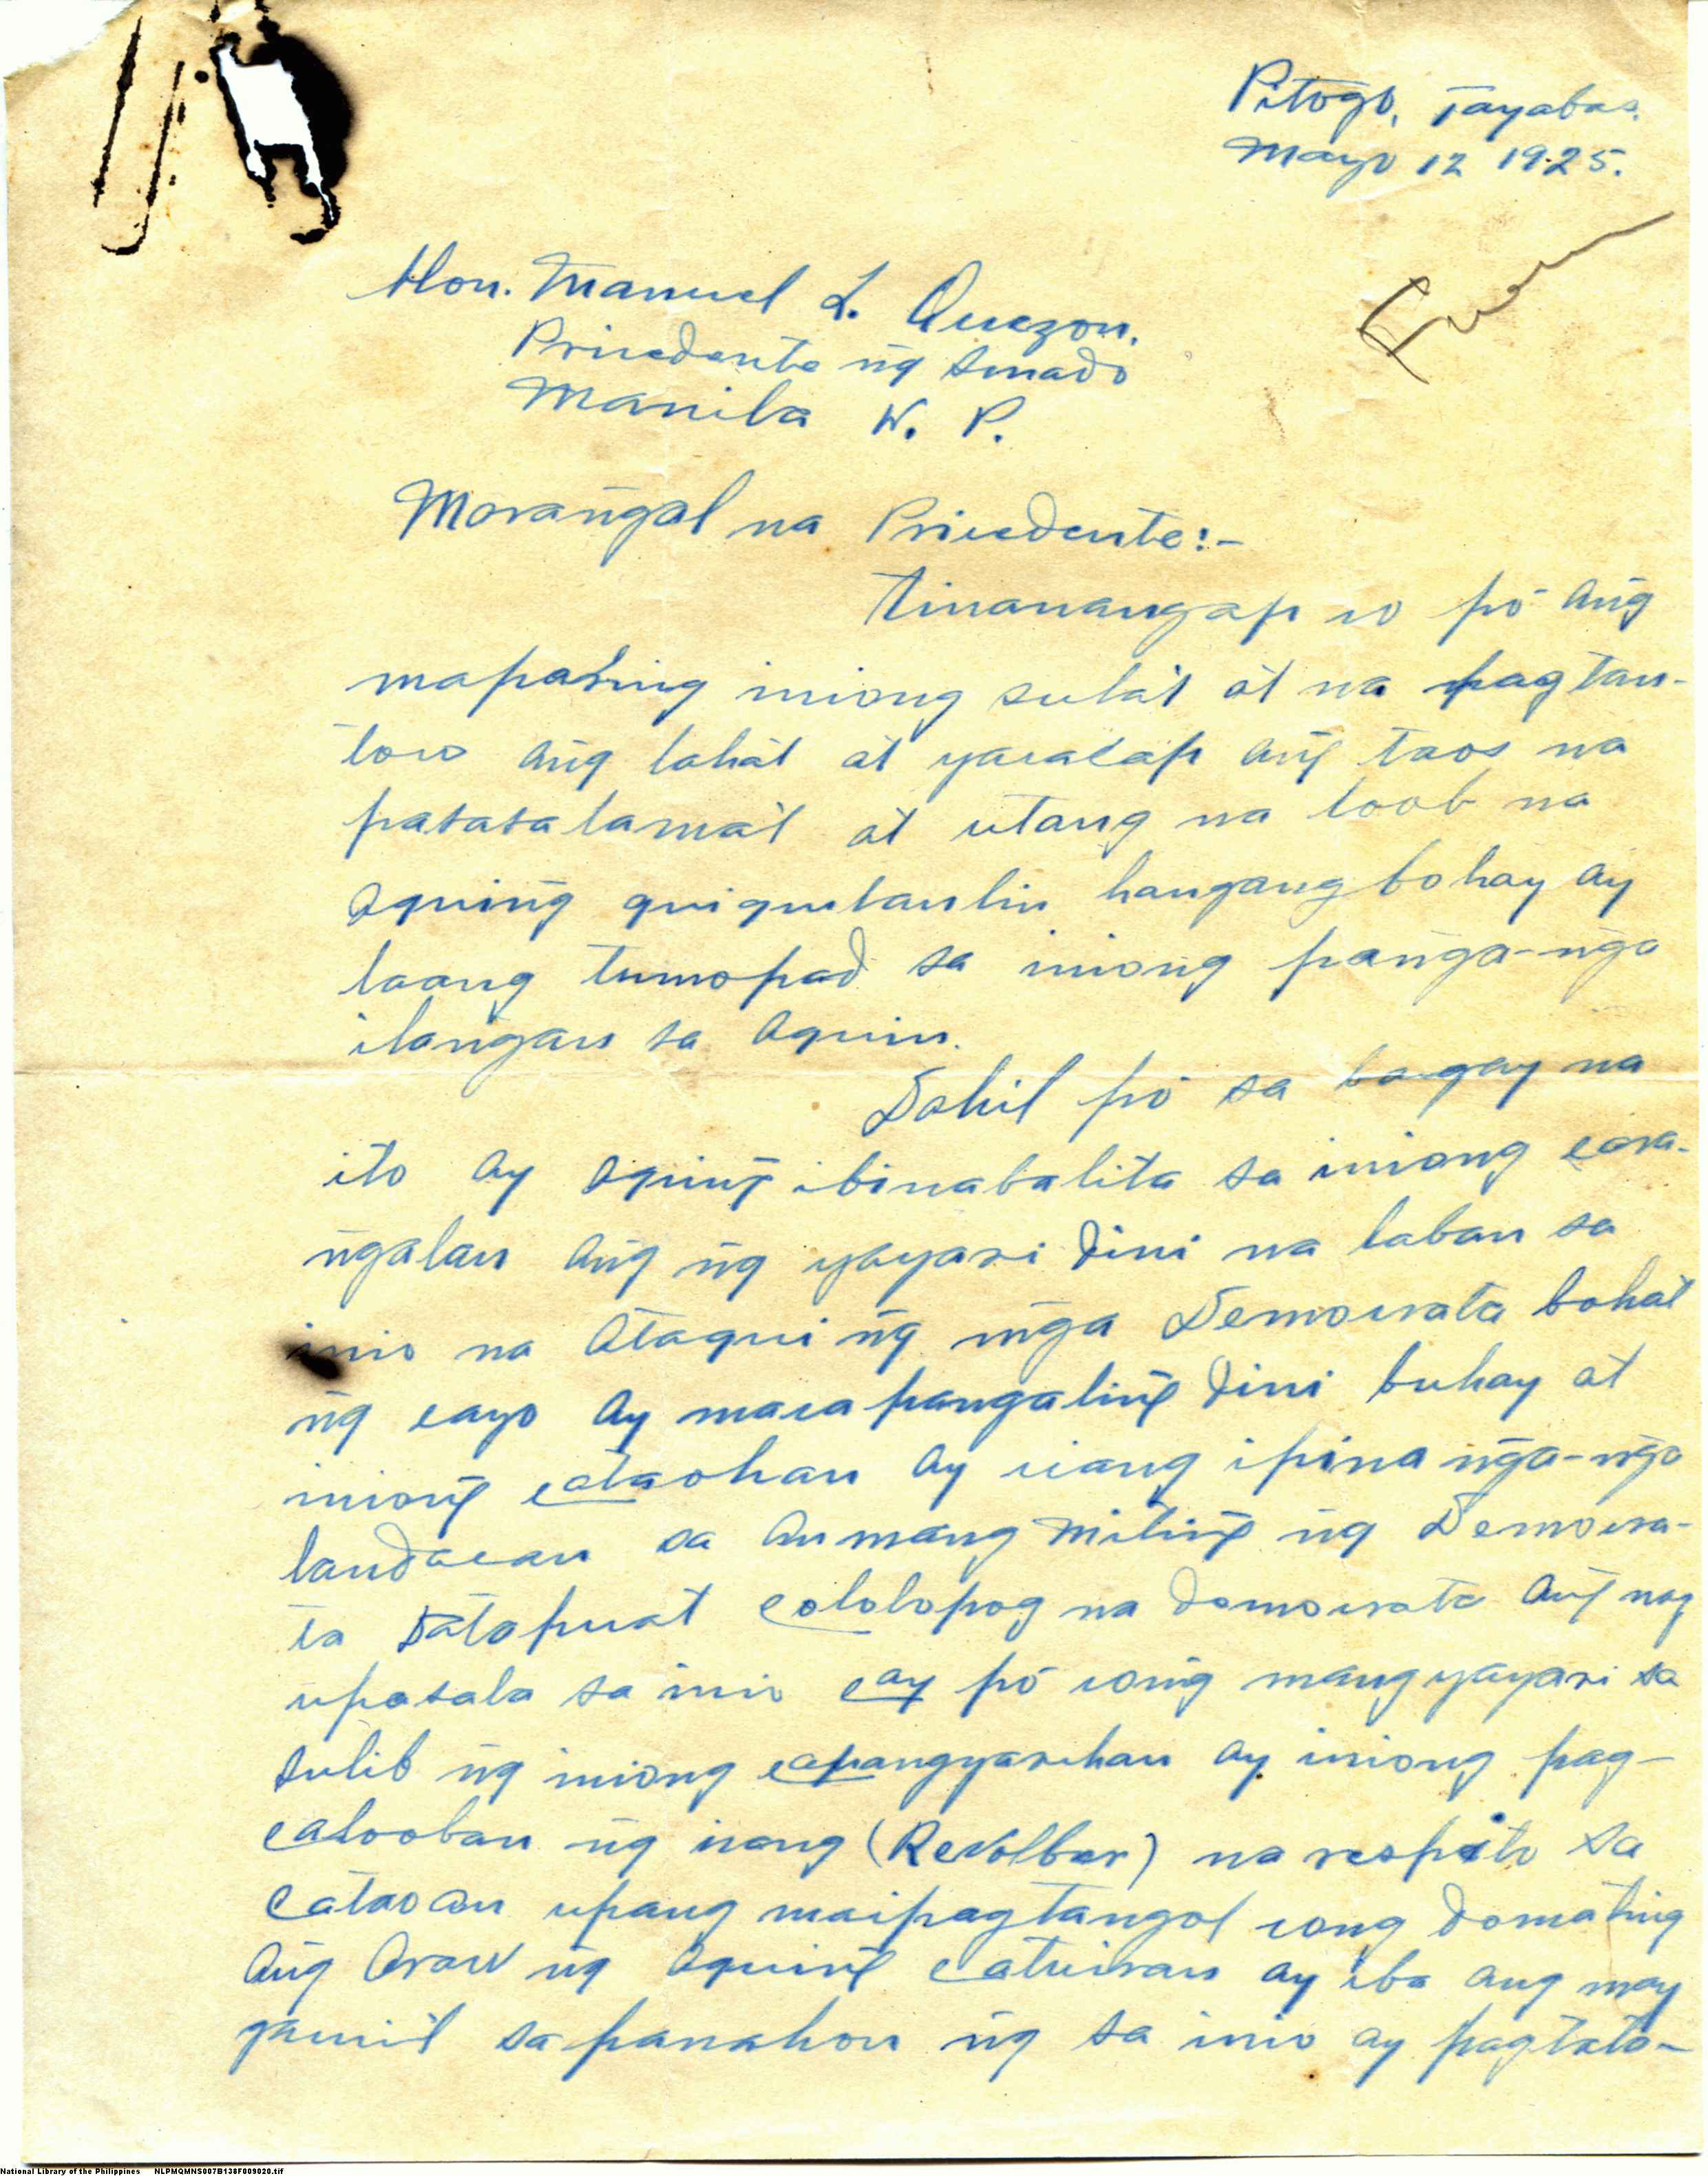 Pitogo, Tayabas.
Mayo 12 1925.
Hon. Manuel L. Quezon.
Pricedente ng Senado
Manila W. P.
Morangal na Pricedente:-
Tinanangap co pô ang
mapalling iniong sulat at na pagtan-
toco ang lahat at yacacap ang taos na
pasasalamat at utang na loob na
aquing quiquilanlin hangang bohay ay
laang tumopad sa iniong panga-nga
ilangan sa aquin.
Dahil pô sa bagay na
ito ay aquing ibinabalita sa iniong cara-
ngalan ang ng yayari dini na laban sa
inio na ataqui ng mga Democrata bohat
ng cayo ay macapangaling dini buhay at
iniong cataohan ay siang ipina nga-nga
landacan sa anmang miting ng Democra-
ta Datapuat cololopog na democrata ang nag
upasala sa inio cay pô cong mangyayari sa
sulib ng iniong capangyarihan ay iniong pag-
calooban ng isang (Revolber) na respito sa
cataoan upang maipagtangol cong domating
ang araw ng aquing catuiran ay iba ang may
gamit sa panahon ng sa inio ay pagtata-
National Library of the Philippines NLPMQMNS007B138F009020.tif